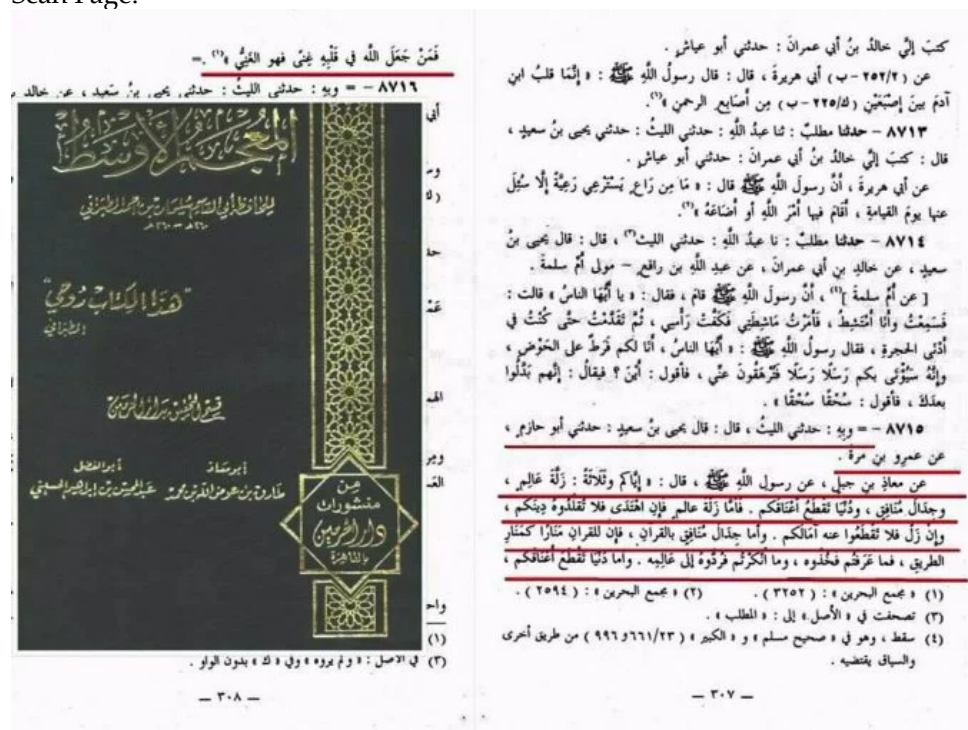 Scan Page:
كتبَ إليَّ خالدُ بنُ أبي عمرانَ : حدثني أبو عياشٍ .
عن (٢٥٢/٢ - ب) أبي هريرةَ ، قال : قال رسولُ اللَّهِ ﷺ : « إنَّمَا قلبُ ابنِ
آدمَ بينَ إصْبَعَيْنِ (ك/٢٢٥ - ب) مِن أصَابِعِ الرحمنِ »(١).
٨٧١٣ - حدثنا مطلبٌ : ثنا عبدُ اللَّهِ : حدثني الليثُ : حدثني يحيى بنُ سعيدٍ ،
قال : كتبَ إليَّ خالدُ بنُ أبي عمرانَ : حدثني أبو عياشٍ .
عن أبي هريرةَ ، أنَّ رسولَ اللَّهِ ﷺ قال : « مَا مِن رَاعٍ يَسْتَرْعِي رَعِيَّةً إلَّا سُئِلَ
عنها يومَ القيامةِ ، أقَامَ فيها أمْرَ اللَّهِ أو أضَاعَهُ »(٢).
٨٧١٤ - حدثنا مطلبٌ : نا عبدُ اللَّهِ : حدثني الليث(٣) ، قال : قال يحيى بنُ
سعيدٍ ، عن خالدِ بنِ أبي عمرانَ ، عن عبدِ اللَّهِ بن رافعٍ - مَولى أُمِّ سلمةَ .
[ عن أُمِّ سلمةَ ](٤) ، أنَّ رسولَ اللَّهِ ﷺ قامَ ، فقال : « يا أيُّهَا الناسُ » قالت :
فَسَمِعْتُ وأنَا أمْتَشِطُ ، فَأمَرْتُ مَاشِطَتِي فَكَفَّتْ رَأسِي ، ثُمَّ تَقَدَّمْتُ حتَّى كُنْتُ في
أدْنَى الحجرةِ ، فقال رسولُ اللَّهِ ﷺ : « أيُّهَا الناسُ ، أنَا لكم فَرَطٌ على الحَوْضِ ،
وإنَّهُ سَيُؤْتَى بكم رَسَلًا رَسَلًا فَتُرْهَقُونَ عنِّي ، فأقول : أيْنَ ؟ فيقالُ : إنَّهم بَدَّلُوا
بعدَكَ ، فأقول : سُحْقًا سُحْقًا » .
٨٧١٥ - = وبِهِ : حدثني الليثُ ، قال : قال يحيى بنُ سعيدٍ : حدثني أبو حازمٍ ،
عن عمرِو بنِ مرةَ .
عن معاذِ بنِ جبلٍ ، عن رسولِ اللَّهِ ﷺ ، قال : « إيَّاكم وثَلَاثَةً : زَلَّةَ عَالِمٍ ،
وجِدَالَ مُنَافِقٍ ، ودُنْيَا تَقْطَعُ أعْنَاقَكم . فَأمَّا زَلَّةُ عالمٍ فَإن اهْتَدَى فلا تُقَلِّدُوهُ دِينَكم ،
وإنْ زَلَّ فلا تَقْطَعُوا عنه آمَالَكم . وأما جِدَالُ مُنَافِقٍ بالقرآنِ ، فإن للقرآنِ مَنَارًا كمَنَارِ
الطريقِ ، فما عَرَفتُم فخُذُوه ، وما أنْكَرْتُم فَرُدُّوهُ إلى عَالِمِه . وأما دُنْيَا تَقْطَعُ أعْنَاقَكم ،
(١) « مجمع البحرين » : (٣٢٥٢) . (٢) « مجمع البحرين » : (٢٥٩٤) .
(٣) تصحفت في « الأصل » إلى : « المطلب » .
(٤) سقط ، وهو في « صحيح مسلم » و « الكبير » (٦٦١/٢٣ و ٩٩٦) من طريق أخرى
والسياق يقتضيه .
— ٣٠٧ —
فَمَنْ جَعَلَ اللَّه في قَلْبِه غِنًى فهو الغَنِيُّ »(١) .=
٨٧١٦ - = وبِه : حدثني الليثُ : حدثني يحيى بنُ سَعيد ، عن خالد
المعجم الأوسط
للحافظ أبي القاسم سليمان بن أحمد الطبراني
٢٦٠ هـ - ٣٦٠ هـ
"هذا الكتاب روحي"
الطبراني
قسم التحقيق بدار الحرمين
أبو معاذ
طارق بن عوض الله بن محمد
أبو الفضل
عبد المحسن بن إبراهيم الحسيني
من
منشورات
دار الحرمين
بالقاهرة
(١)
(٣) في الأصل : « ولم يروه » وفي « ك » بدون الواو .
— ٣٠٨ —